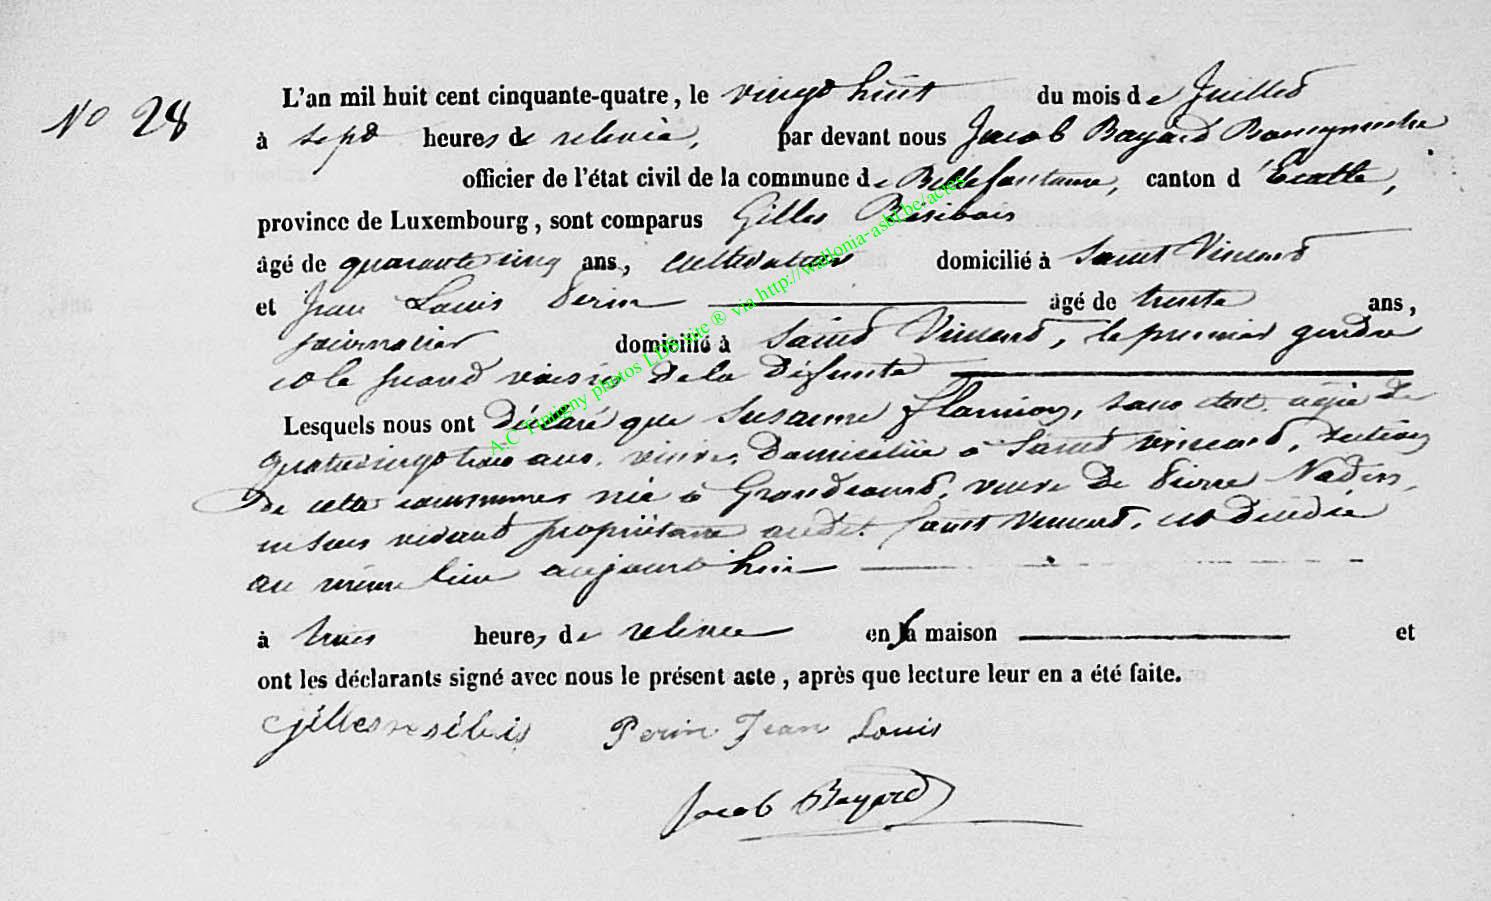 No 28
L'an mil huit cent cinquante-quatre, le vingt huit du mois de Juillet
à sept heures de relevée, par devant nous Jacob Bayard Bourgmestre
officier de l'état civil de la commune de Bellefontaine, canton d'Etalle,
province de Luxembourg, sont comparus Gilles Resibois
âgé de quarante cinq ans, cultivateur domicilié à Saint Vincent
et Jean Louis Perin âgé de trente ans,
journalier domicilié à Saint Vincent, le premier gendre
et le second voisin de la défunte
Lesquels nous ont déclaré que Susanne flamion, sans etat, agée de
quatrevingt trois ans, veuve, domiciliée à Saint Vincent, section
de cette commune, née à Grandcourt, veuve de Pierre Nadin,
en son vivant propriétaire audit Saint Vincent, est décédée
au même lieu aujourd'hui
à trois heures de relevée en sa maison et
ont les déclarants signé avec nous le présent acte, après que lecture leur en a été faite.
Gilles resibois Perin Jean Louis
Jacob Bayard
A.C Tintigny photos LDS site ® via http://wallonia-asbl.be/actes